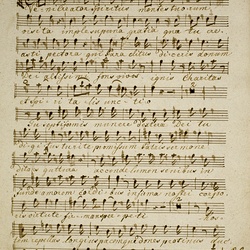 Veni creator Spiritus mentes tuorum
visita imple superna gratia quæ tu cre-
asti pectora qui paraclitus diceris donum
Dei altissimi fons vivus ignis Charitas
et spiritalis unctio
Tu septiformis munere dextræ Dei tu
digi tu rite promissum patris sermone
ditans guttura accende lumen sensibus in
funde amorem cordibus infirma nostri corpo-
ris virtute firmans perpeti hos-
tem repellas longius pacemque dones protinus duc